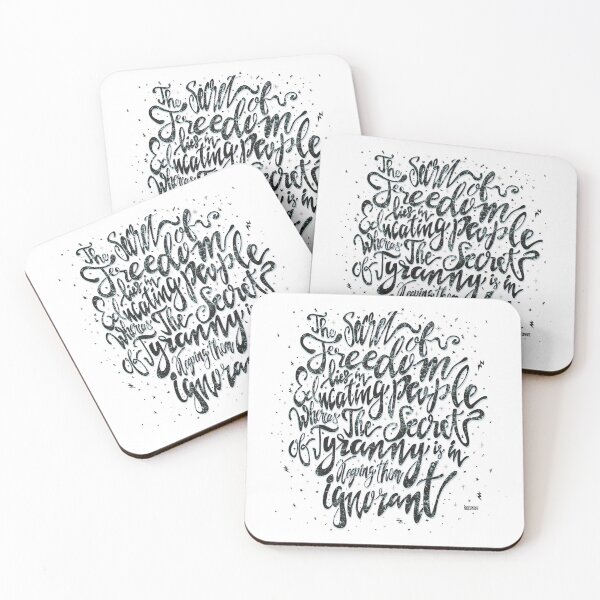 The Secret of
Freedom
lies in
Educating People
Whereas The Secret
The Secret of
Freedom
lies in
Educating People
Whereas The Secret
of Tyranny is in
Keeping them
The Secret of
Freedom
lies in
Educating People
Whereas The Secret
of Tyranny is
Keeping them
ignorant
The Secret of
Freedom
lies in
Educating People
Whereas The Secret
of Tyranny is in
Keeping them
ignorant